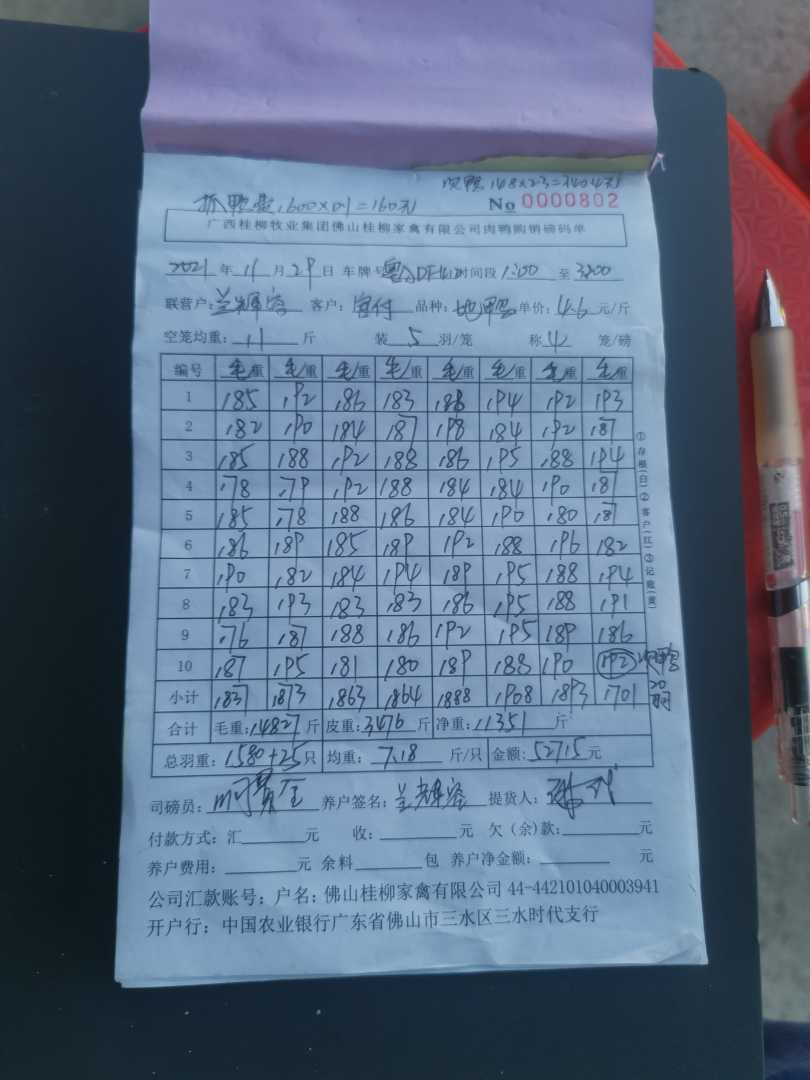 148×23=3404元
抓鸭费:1600×0.1=160元
No 0000802
广西桂柳牧业集团佛山桂柳家禽有限公司肉鸭购销磅码单
2021年11月29日 车牌号 时间段1:00至3:00
联营户: 客户: 品种: 单价:4.6元/斤
空笼均重:11斤 装5羽/笼 称4笼/磅
编号 毛重 毛重 毛重 毛重 毛重 毛重 毛重 毛重
1 185 192 186 183 188 194 192 193
2 182 190 184 187 198 184 192 187
3 185 188 192 188 186 195 188 194
4 178 179 192 188 184 184 190 187
5 185 178 188 186 184 190 180 187
6 186 189 185 189 192 188 196 182
7 190 182 184 194 189 195 188 194
8 183 193 183 183 186 195 188 191
9 176 187 188 186 192 195 189 186
10 187 195 181 180 189 188 190 192
小计 1837 1873 1863 1864 1888 1908 1893 1701
20羽
合计 毛重:14827斤 皮重:3476斤 净重:11351斤
总羽重:1580+25只 均重:7.18斤/只 金额:52715元
司磅员: 养户签名: 提货人:
付款方式:汇 元 收: 元 欠(余)款: 元
养户费用: 元 余料 包 养户净金额: 元
公司汇款账号:户名:佛山桂柳家禽有限公司 44-442101040003941
开户行:中国农业银行广东省佛山市三水区三水时代支行
①存根(白)②客户(红)③记账(黄)